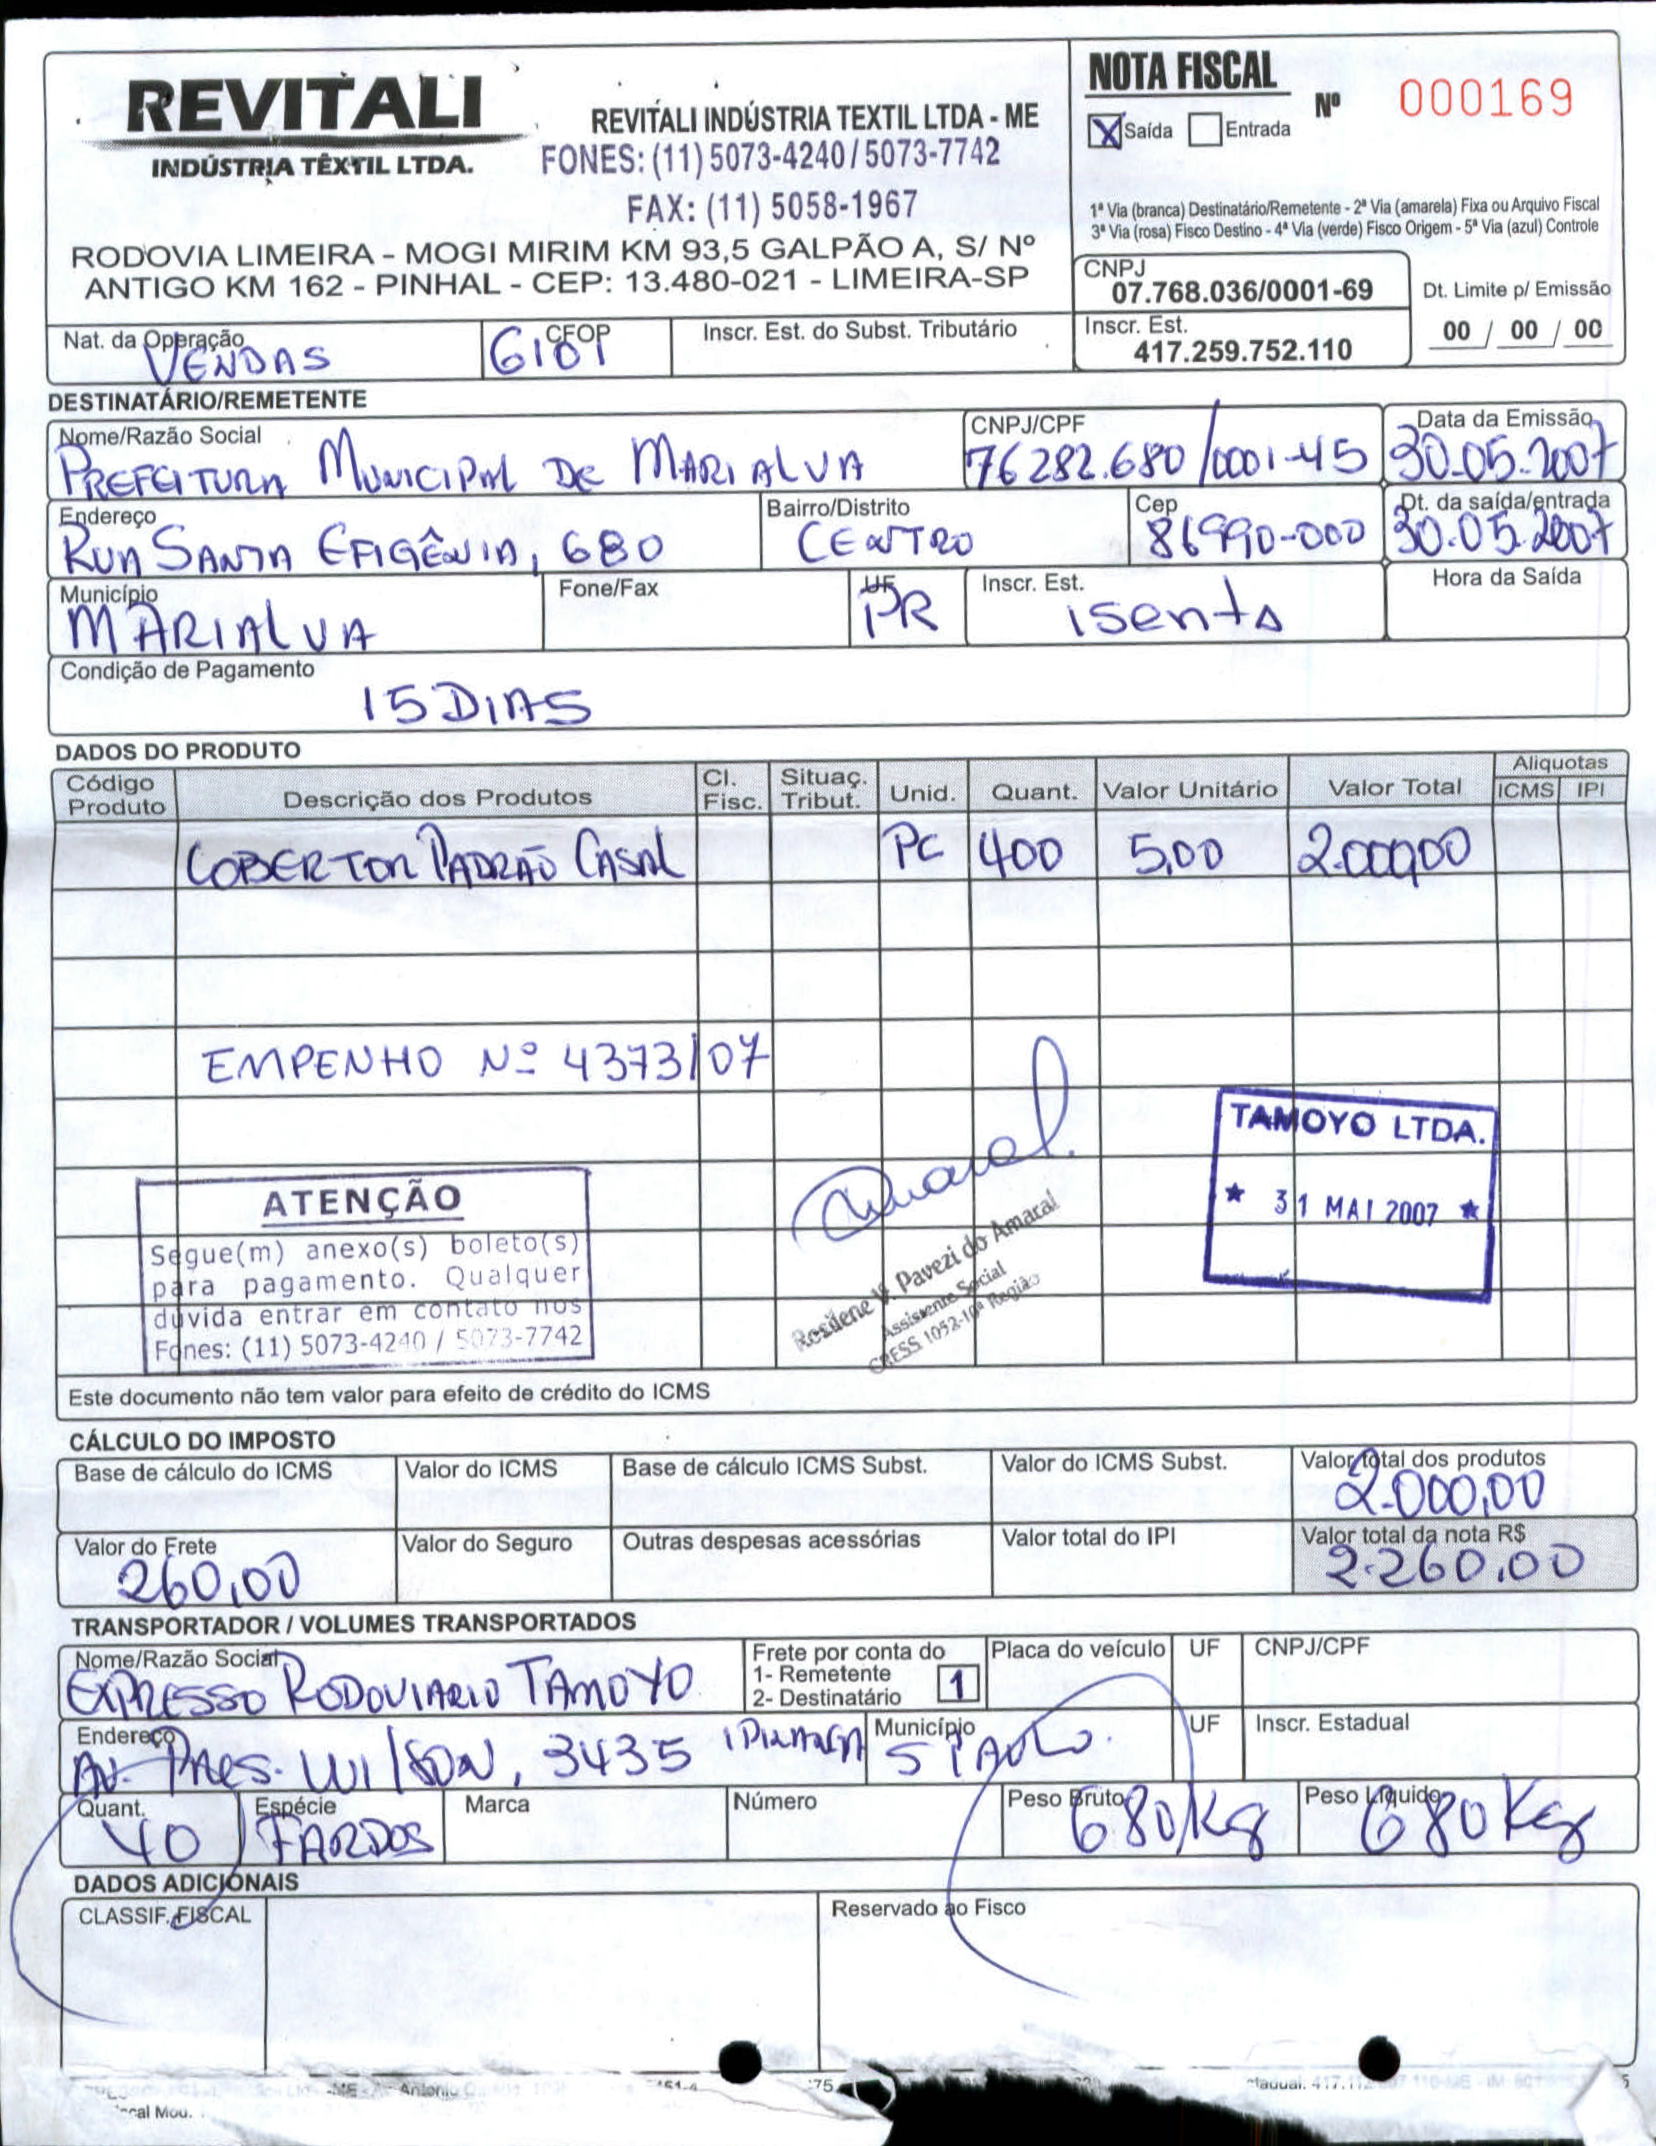 REVITALI
INDÚSTRIA TÊXTIL LTDA.
REVITALI INDÚSTRIA TEXTIL LTDA - ME
FONES: (11) 5073-4240/5073-7742
FAX: (11) 5058-1967
RODOVIA LIMEIRA - MOGI MIRIM KM 93,5 GALPÃO A, S/ Nº
ANTIGO KM 162 - PINHAL - CEP: 13.480-021 - LIMEIRA-SP
NOTA FISCAL
Nº 000169
X Saída Entrada
1ª Via (branca) Destinatário/Remetente - 2ª Via (amarela) Fixa ou Arquivo Fiscal
3ª Via (rosa) Fisco Destino - 4ª Via (verde) Fisco Origem - 5ª Via (azul) Controle
CNPJ
07.768.036/0001-69
Dt. Limite p/ Emissão
00 / 00 / 00
Inscr. Est.
417.259.752.110
Nat. da Operação CFOP Inscr. Est. do Subst. Tributário
VENDAS 6101
DESTINATÁRIO/REMETENTE
Nome/Razão Social CNPJ/CPF Data da Emissão
PREFEITURA MUNICIPAL DE MARIALVA 76282.680/0001-45 30.05.2007
Endereço Bairro/Distrito Cep Dt. da saída/entrada
RUA SANTA EFIGÊNIA, 680 CENTRO 86990-000 30.05.2007
Município Fone/Fax UF Inscr. Est. Hora da Saída
MARIALVA PR isento
Condição de Pagamento
15 DIAS
DADOS DO PRODUTO
Código Produto Descrição dos Produtos Cl. Fisc. Situaç. Tribut. Unid. Quant. Valor Unitário Valor Total Aliquotas ICMS IPI
COBERTOR PADRÃO CASAL PC 400 5,00 2.000,00
EMPENHO Nº 4373/07
TAMOYO LTDA.
★ 31 MAI 2007 ★
ATENÇÃO
Segue(m) anexo(s) boleto(s)
para pagamento. Qualquer
dúvida entrar em contato nos
Fones: (11) 5073-4240 / 5073-7742
Amaral
Rosilene V. Pavezi do Amaral
Assistente Social
CRESS 1052-10ª Região
Este documento não tem valor para efeito de crédito do ICMS
CÁLCULO DO IMPOSTO
Base de cálculo do ICMS Valor do ICMS Base de cálculo ICMS Subst. Valor do ICMS Subst. Valor total dos produtos
2.000,00
Valor do Frete Valor do Seguro Outras despesas acessórias Valor total do IPI Valor total da nota R$
260,00 2.260,00
TRANSPORTADOR / VOLUMES TRANSPORTADOS
Nome/Razão Social Frete por conta do Placa do veículo UF CNPJ/CPF
1- Remetente
2- Destinatário 1
EXPRESSO RODOVIARIO TAMOYO
Endereço Município UF Inscr. Estadual
AV. PAES. WILSON, 3435 IPIRANGA S PAULO.
Quant. Espécie Marca Número Peso Bruto Peso Líquido
40 FARDOS 680 Kg 680 Kg
DADOS ADICIONAIS
CLASSIF. FISCAL Reservado ao Fisco